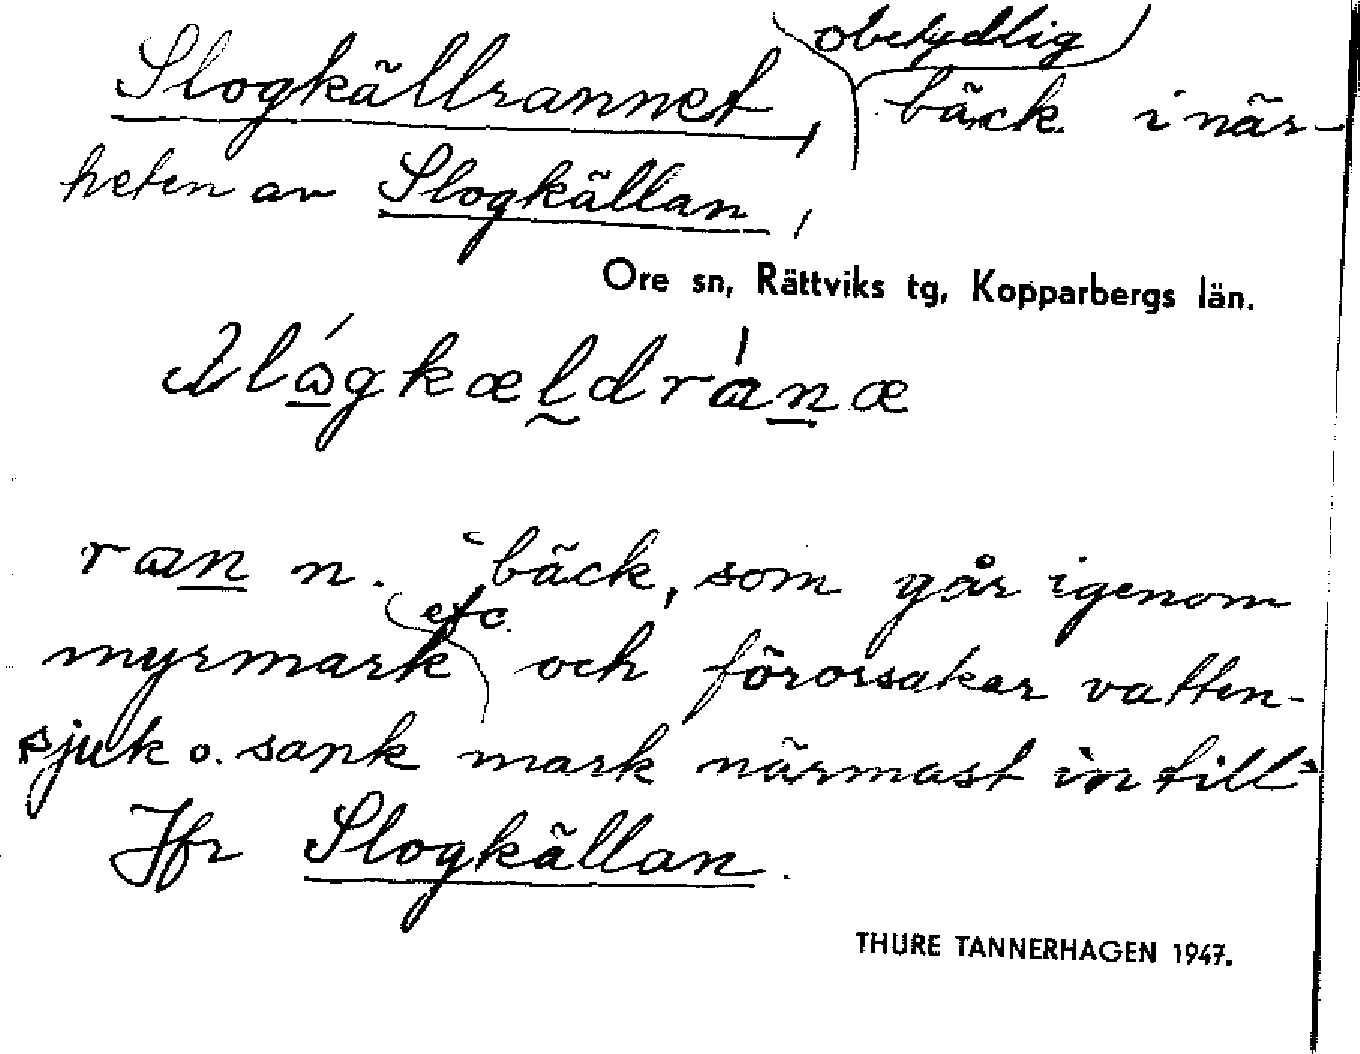 Slogkällrannet, obetydlig bäck i när-
heten av Slogkällan,
Ore sn, Rättviks tg, Kopparbergs län.
ran n. "bäck, som går igenom
myrmark etc. och förorsakar vatten-
sjuk o. sank mark närmast intill"
Jfr Slogkällan.
THURE TANNERHAGEN 1947.